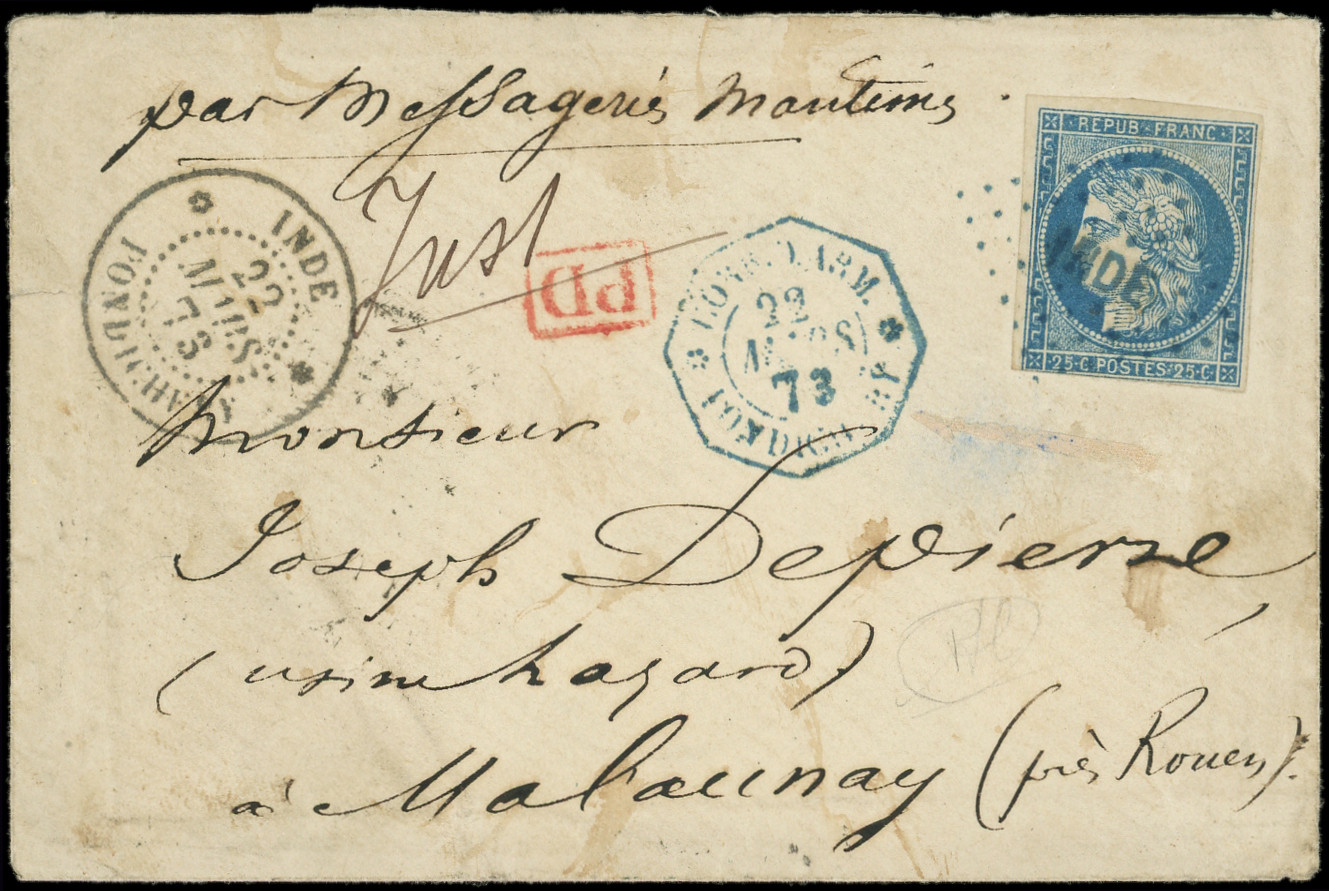 par Messageries Maritimes
Just
INDE
PONDICHERY
22
MARS
73
PD
CORR. D. ARM.
22
MARS
73
PONDICHERY
REPUB. FRANC.
INDE
25·C POSTES·25·C
Monsieur
Joseph Depierre
(usine hazard)
à Malaunay (près Rouen).